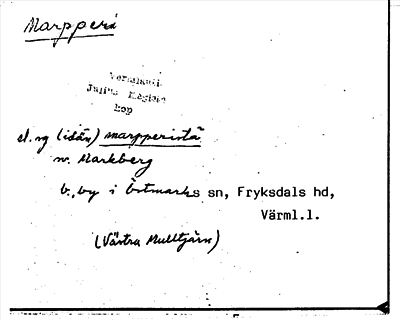 Marpperi
Vermland:
Julius Mägiste
kop
el. ng (isän) marpperistä
sv. Markberg
b., by i Östmarks sn, Fryksdals hd,
Värml.l.
(Västra Mulltjärn)